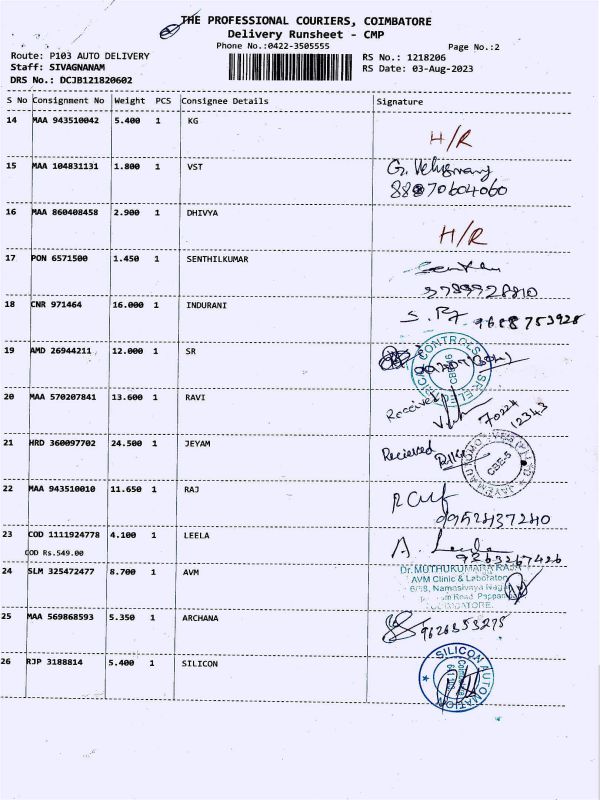 THE PROFESSIONAL COURIERS, COIMBATORE
Delivery Runsheet - CMP
Phone No.:0422-3505555
Page No.:2
Route: P103 AUTO DELIVERY
RS No.: 1218206
Staff: SIVAGNANAM
RS Date: 03-Aug-2023
DRS No.: DCJB121820602
S No Consignment No Weight PCS Consignee Details Signature
14 MAA 943510042 5.400 1 KG
H/R
15 MAA 104831131 1.800 1 VST
G. 
8870604060
16 MAA 860408458 2.900 1 DHIVYA
H/R
17 PON 6571500 1.450 1 SENTHILKUMAR
18 CNR 971464 16.000 1 INDURANI
9688753928
19 AMD 26944211 12.000 1 SR
CONTROLS
20 MAA 570207841 13.600 1 RAVI
Received
70224
12343
21 HRD 360097702 24.500 1 JEYAM
Recieved
CBE-5
22 MAA 943510010 11.650 1 RAJ
0952437240
23 COD 1111924778 4.100 1 LEELA
COD Rs.549.00
A. Leela
9263267426
24 SLM 325472477 8.700 1 AVM
Dr.MUTHUKUMARA RAJA
AVM Clinic & Laboratory
6/18, Namasivaya Nagar
Road, Pappan
COIMBATORE.
25 MAA 569868593 5.350 1 ARCHANA
9626353275
26 RJP 3188814 5.400 1 SILICON
SILICON AUTOMATION